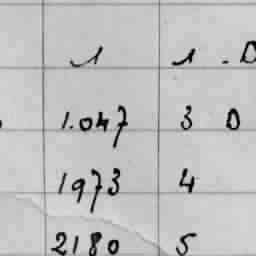 1 1 . D
1.047 3 D
1973 4
2180 5